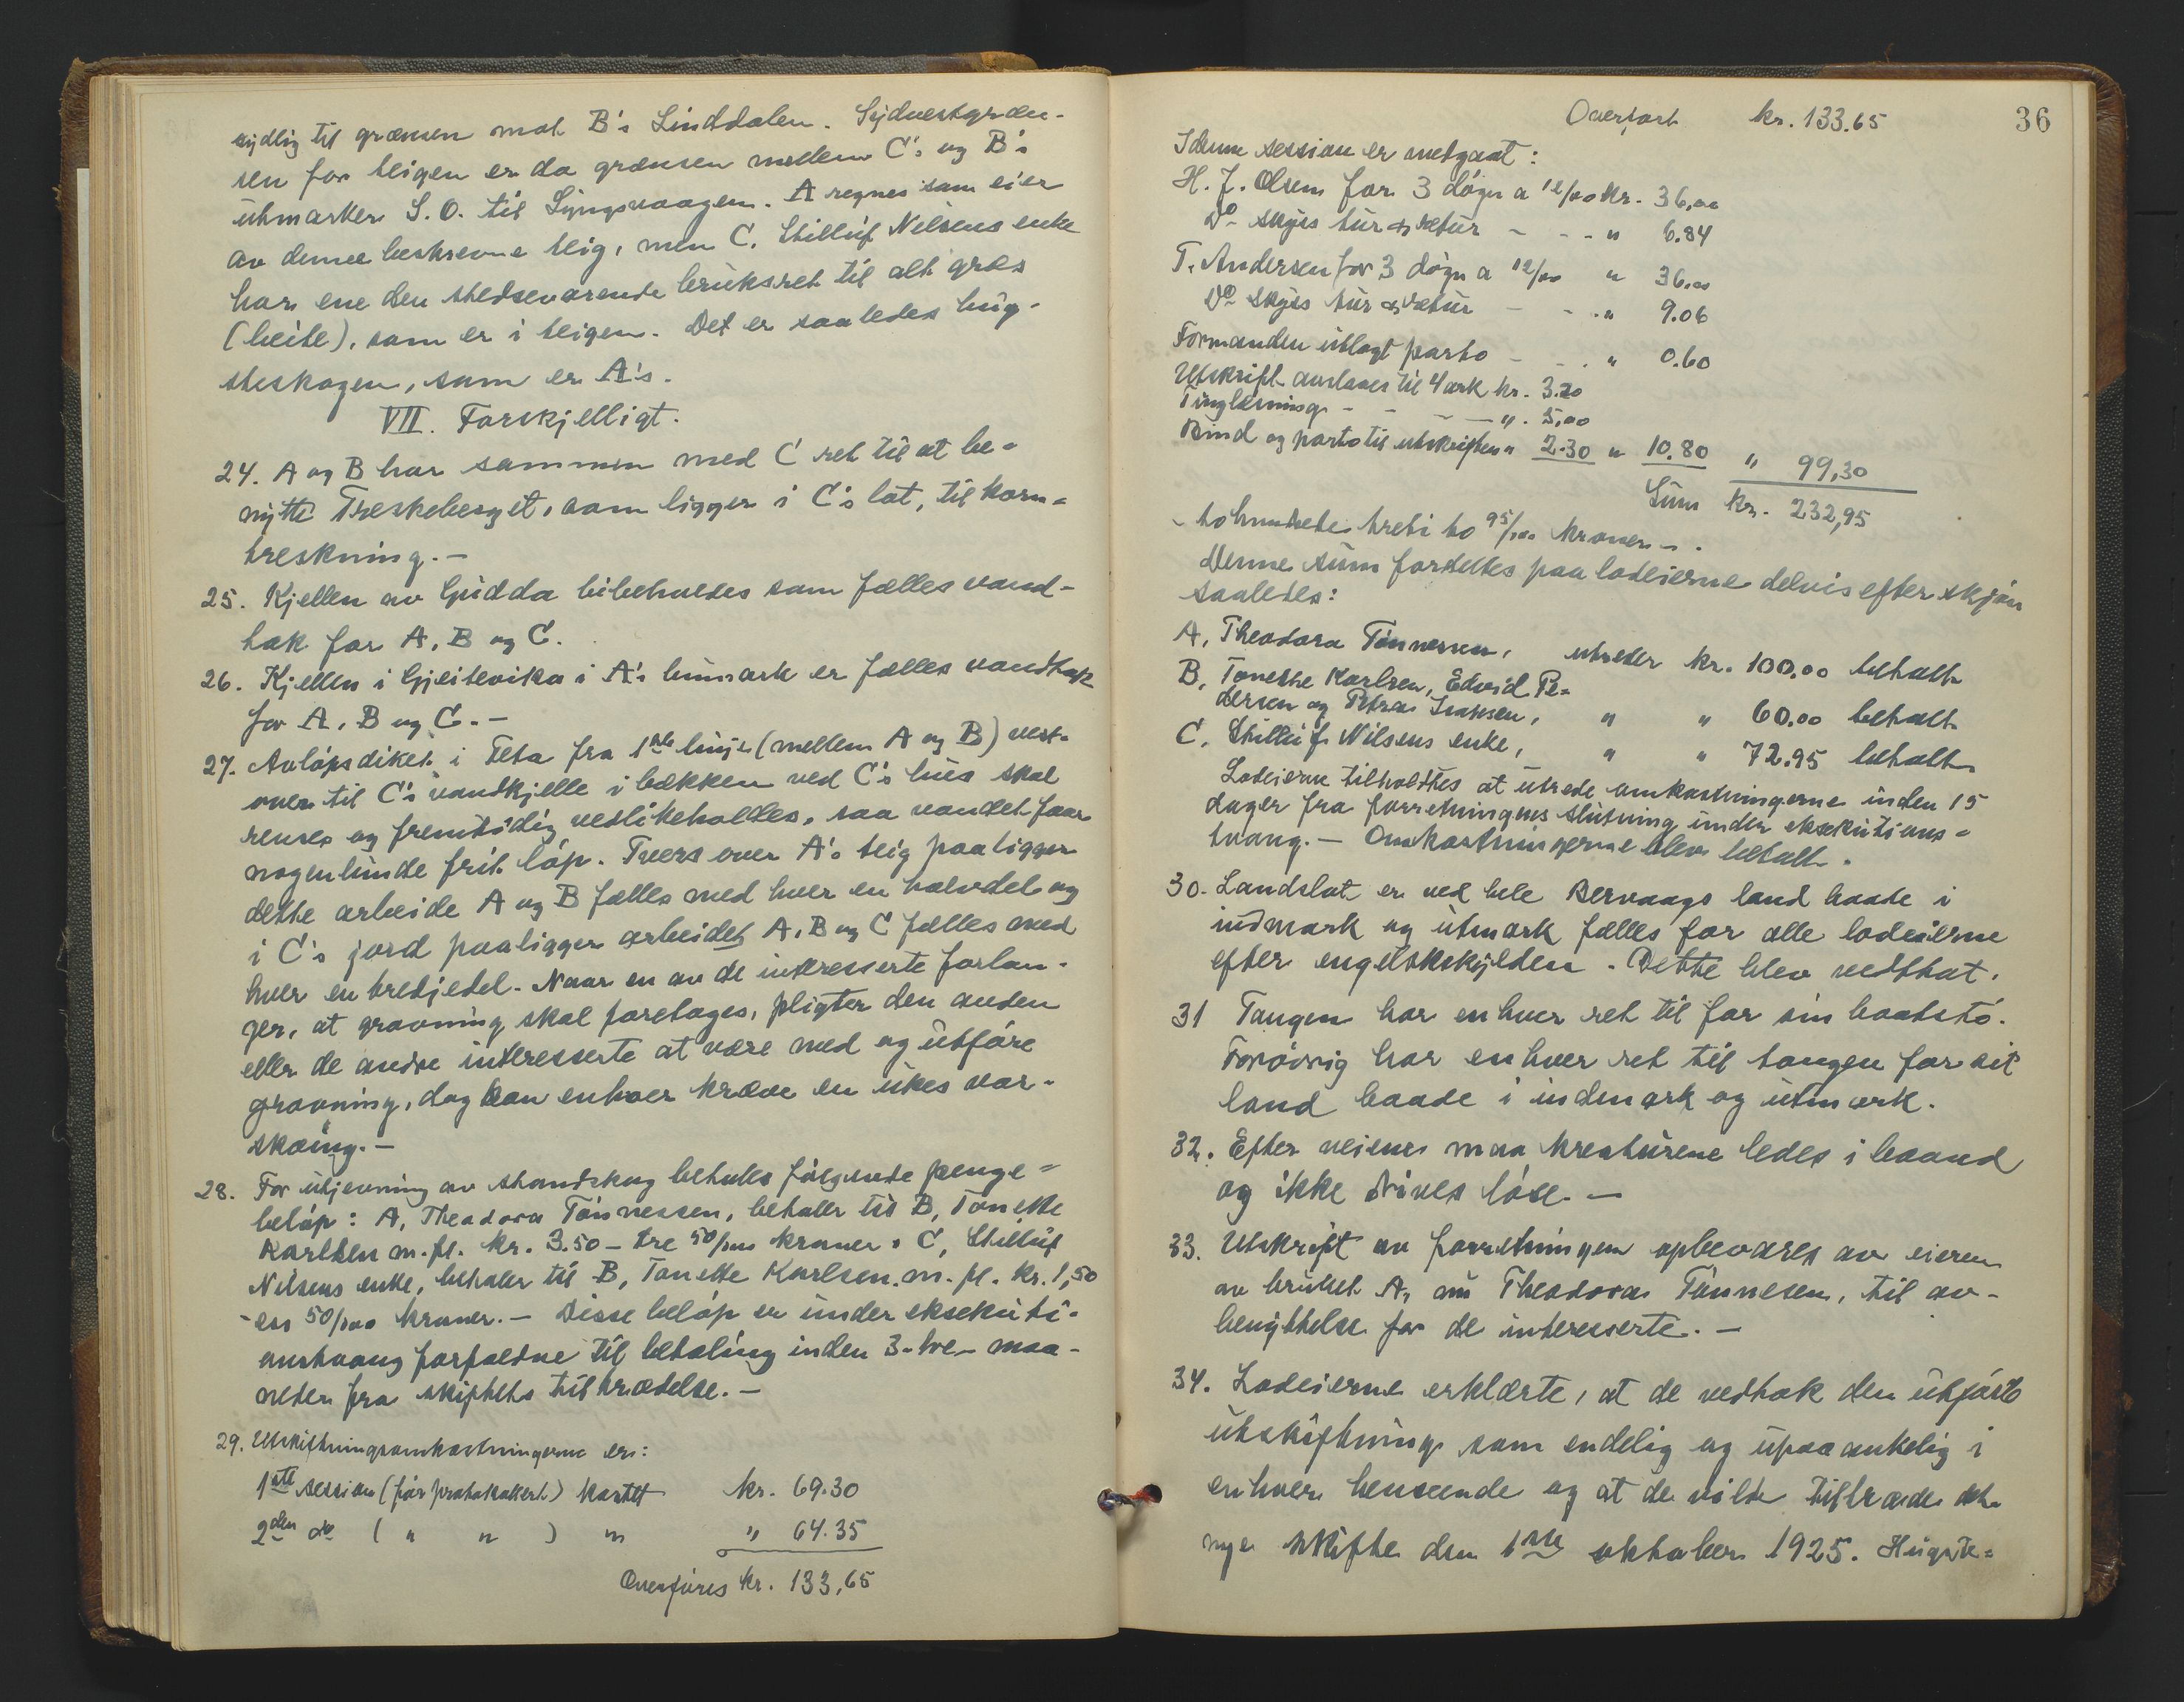 sydlig til grænsen mot B's Linddalen. Sydvestgræn-
sen for teigen er da grænsen mellem C's og B's
utmarker S.O. til Lyngsvaagen. A regnes som eier
av denne beskrevne teig, men C, Stilluf Nilsens enke
har ene den stedsevarende bruksret til alt græs
(beite), som er i teigen. Det er saaledes hug-
steskogen, som er A's.
VII. Forskjelligt.
24. A og B har sammen med C ret til at be-
nytte Treskeberget, som ligger i C's lot, til korn-
treskning.-
25. Kjellen av Gudda bibeholdes som fælles vand-
tak for A, B og C.
26. Kjellen i Gjeitevika i A's innmark er fælles vandtak
for A, B og C.-
27. Avløpsdiket i Teta fra 1ste linje (mellem A og B) vest-
over til C's vandkjelle i bækken ved C's hus skal
renses og fremtidig vedlikeholdes, saa vandet faar
nogenlunde frit løp. Tvers over A's teig paaligger
dette arbeide A og B fælles med hver en halvdel og
i C's jord paaligger arbeidet A, B og C fælles med
hver en tredjedel. Naar en av de interesserte forlan-
ger, at gravning skal foretages, pligter den anden
eller de andre interesserte at være med og utføre
gravning, dog kan enhver kræve en ukes var-
skoing.-
28. For utjevning av standskog betales følgende penge-
beløp: A, Theodora Tønnessen, betaler til B, Tonette
Karlsen m.fl. kr. 3.50 - tre 50/100 kroner. C, Stilluf
Nilsens enke, betaler til B, Tonette Karlsen m.fl. kr. 1,50
- en 50/100 kroner.- Disse beløp er under eksekuti-
onstvang forfaldne til betaling inden 3-tre- maa-
neder fra skiftets tiltrædelse.-
29. Utskiftningsomkostningerne er:
1ste session (før protokollert) kostet kr. 69.30
2den do ( " " ) " " 64.35
Overføres kr. 133,65
36
Overført kr. 133.65
I denne session er medgaat:
H. J. Olsen for 3 døgn a 12/00 kr. 36,00
Do skyss tur & retur - - - " 6.84
T. Andersen for 3 døgn a 12/00 " 36.00
Do skyss tur & retur - - . " 9.06
Formanden utlagt porto - - . " 0.60
Utskrift anslaaes til 4 ark kr. 3.20
Tinglæsning - - - - " 5,00
Bind og porto til utskriften " 2.30 " 10.80 " 99,30
Sum kr. 232,95
- tohundrede tretito 95/100 kroner -.
Denne sum fordeltes paa lodeierne delvis efter skjøn
saaledes:
A, Theodora Tønnessen, utreder kr. 100.00 betalt
B, Tonette Karlsen, Edvid Pe-
dersen og Petra Isaksen, " " 60.00 betalt
C, Stilluf Nilsens enke, " " 72.95 betalt
Lodeierne tilholdtes at utrede omkostningerne inden 15
dager fra forretningens slutning under eksekutions-
tvang.- Omkostningerne blev betalt.
30. Landslot er ved hele Bervaags land baade i
indmark og utmark fælles for alle lodeierne
efter engelskskylden. Dette blev vedtat.
31 Tangen har enhver ret til for sin baatstø.
Forøvrig har enhver ret til tangen for sit
land baade i indmark og utmark.
32. Efter veiene maa kreaturene ledes i baand
og ikke drives løse.-
33. Utskrift av forretningen opbevares av eieren
av bruket A, nu Theodora Tønnesen, til av-
benyttelse for de interesserte.-
34. Lodeierne erklærte, at de vedtok den utførte
utskiftning som endelig og upaaankelig i
enhver henseende og at de vilde tiltræde det
nye skifte den 1ste oktober 1925. Hugste-